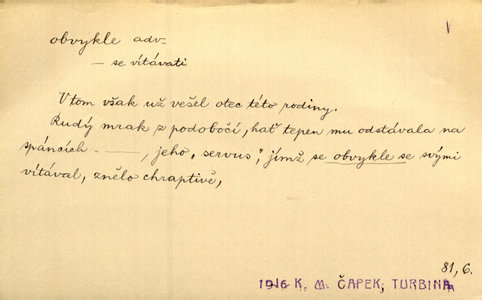 obvykle adv.
— se vítávati
V tom však už vešel otec této rodiny.
Rudý mrak z podobočí, hať tepen mu odstávala na
spáncích - —, jeho „servus", jímž se obvykle se svými
vítával, znělo chraptivě,
81, 6.
1916 K. M. ČAPEK, TURBINA